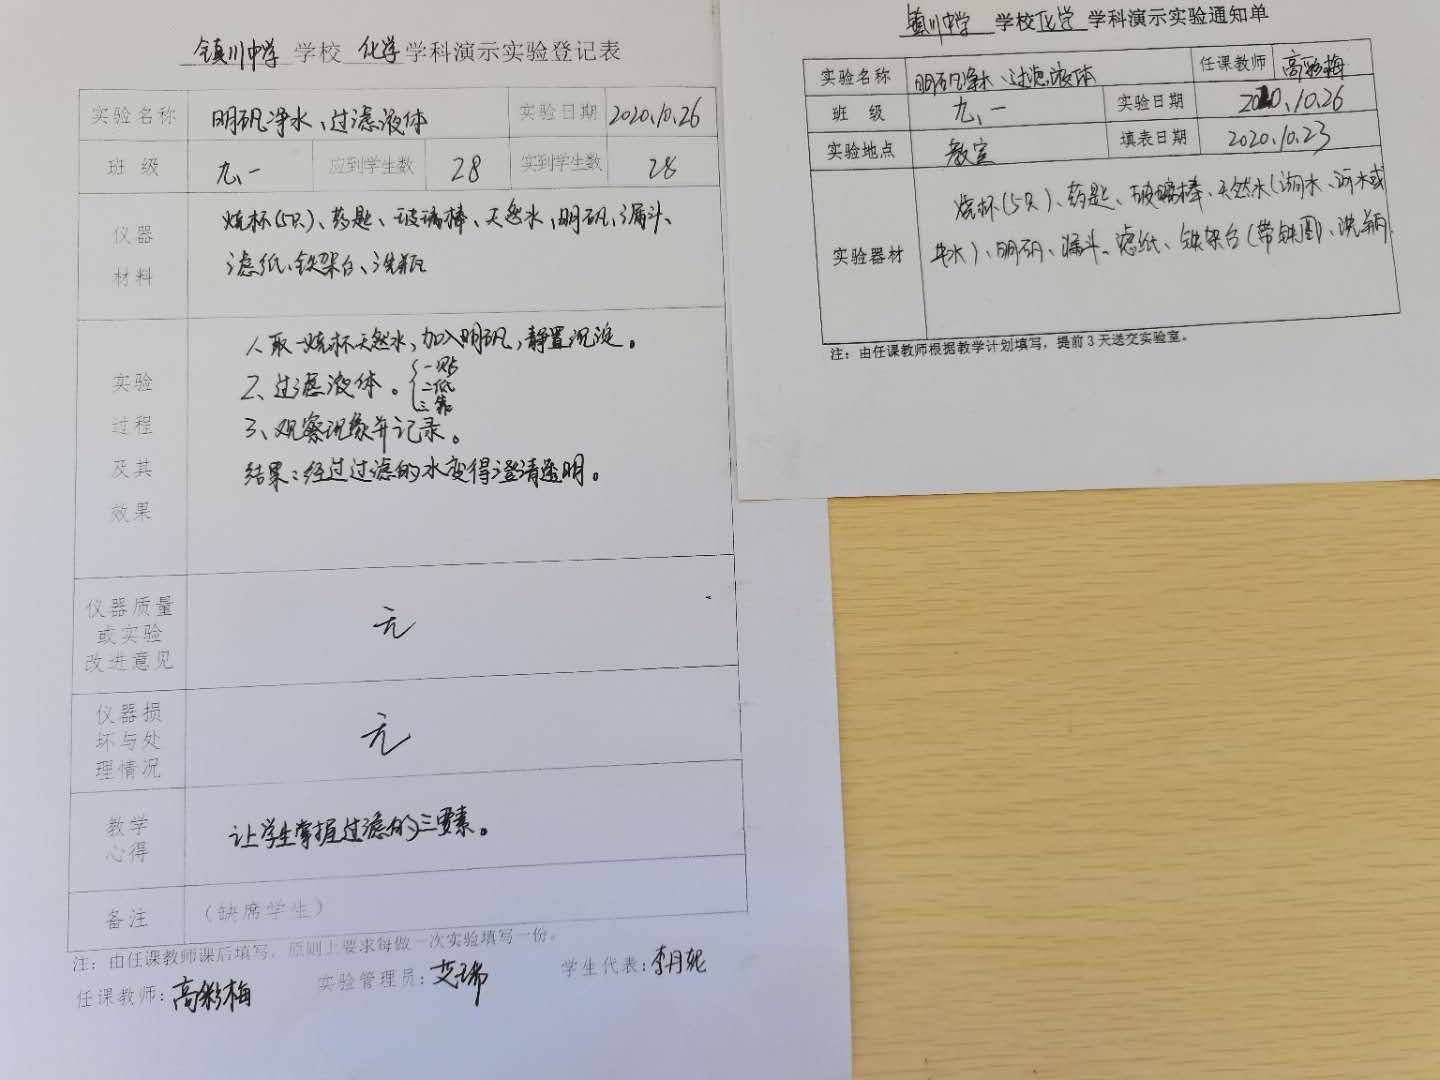 镇川中学 学校 化学 学科演示实验登记表
实验名称 明矾净水、过滤液体 实验日期 2020.10.26
班 级 九、一 应到学生数 28 实到学生数 28
仪器
材料
烧杯(5只)、药匙、玻璃棒、天然水、明矾、漏斗、
滤纸、铁架台、洗瓶
实验
过程
及其
效果
1、取一烧杯天然水，加入明矾，静置沉淀。
2、过滤液体。
一贴
二低
三靠
3、观察现象并记录。
结果：经过过滤的水变得澄清透明。
仪器质量
或实验
改进意见
无
仪器损
坏与处
理情况
无
教学
心得
让学生掌握过滤的三要素。
备注 （缺席学生）
注：由任课教师课后填写，原则上要求每做一次实验填写一份。
任课教师：高彩梅 实验管理员：艾瑞 学生代表：李月
镇川中学 学校 化学 学科演示实验通知单
实验名称 明矾净水、过滤液体 任课教师 高彩梅
班 级 九、一 实验日期 2020.10.26
实验地点 教室 填表日期 2020.10.23
实验器材
烧杯(5只)、药匙、玻璃棒、天然水(湖水、河水或
井水)、明矾、漏斗、滤纸、铁架台(带铁圈)、洗瓶
注：由任课教师根据教学计划填写，提前3天送交实验室。